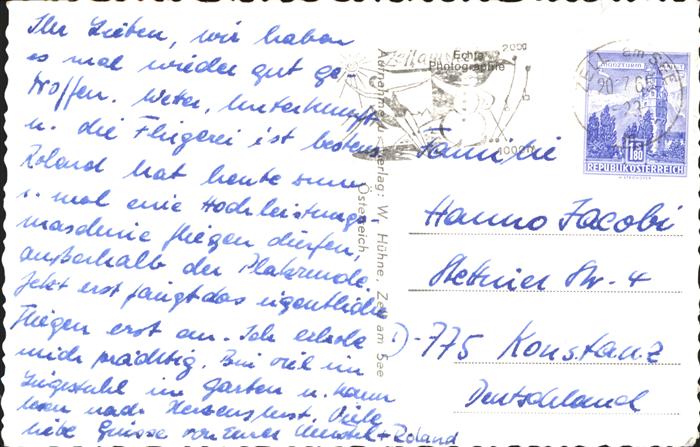 Ihr Lieben, wir haben
es mal wieder gut ge-
troffen. Wetter, Unterkunft
u. die Fliegerei ist bestens.
Roland hat heute zum
1. mal eine Hochleistungs-
maschine fliegen dürfen,
außerhalb der Platzrunde.
Jetzt erst fängt das eigentliche
Fliegen erst an. Ich erhole
mich prächtig. Bin viel im
Liegestuhl im Garten u. kann
lesen nach Herzenslust. Viele
liebe Grüsse von Eurer + Roland
Echte
Photographie
Aufnahme und Verlag: W. Hühne, Zell am See
Österreich
Zell am
2000
1000m
ZELL am SEE
20.-7.6
MÜNZTURM
1.80
REPUBLIK ÖSTERREICH
Familie
Hanno Jacobi
Stettiner Str. 4
D-775 Konstanz
Deutschland